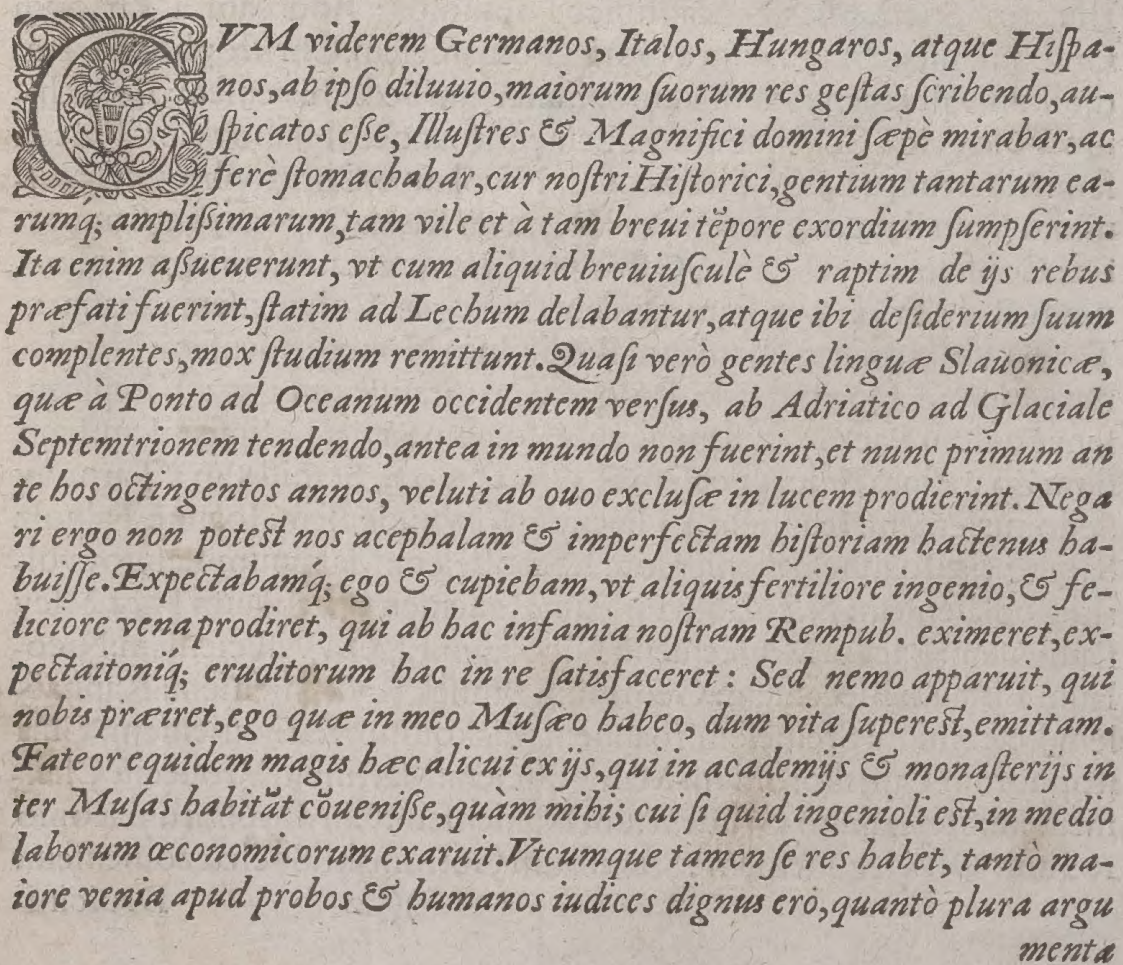 CVM viderem Germanos, Italos, Hungaros, atque Hiſpa-
nos,ab ipſo diluuio,maiorum ſuorum res geſtas ſcribendo,au-
ſpicatos eſſe, Illuſtres & Magnifici domini ſæpè mirabar,ac
ferè ſtomachabar,cur noſtri Hiſtorici,gentium tantarum ea-
rumq́; ampliſsimarum,tam vile et à tam breui tēpore exordium ſumpſerint.
Ita enim aſſueuerunt, vt cum aliquid breuiuſculè & raptim de ijs rebus
præfati fuerint,ſtatim ad Lechum delabantur,atque ibi deſiderium ſuum
complentes,mox ſtudium remittunt.Quaſi verò gentes linguæ Slauonicæ,
quæ à Ponto ad Oceanum occidentem verſus, ab Adriatico ad Glaciale
Septemtrionem tendendo,antea in mundo non fuerint,et nunc primum an
te hos octingentos annos, veluti ab ouo excluſæ in lucem prodierint.Nega
ri ergo non poteſt nos acephalam & imperfectam hiſtoriam hactenus ha-
buiſſe.Expectabamq́; ego & cupiebam,vt aliquis fertiliore ingenio,& fe-
liciore vena prodiret, qui ab hac infamia noſtram Rempub. eximeret,ex-
pectaitoniq́; eruditorum hac in re ſatisfaceret : Sed nemo apparuit, qui
nobis præiret,ego quæ in meo Muſæo habeo, dum vita ſupereſt,emittam.
Fateor equidem magis hæc alicui ex ijs,qui in academijs & monaſterijs in
ter Muſas habitāt cōueniſſe,quàm mihi; cui ſi quid ingenioli eſt,in medio
laborum œconomicorum exaruit.Vtcumque tamen ſe res habet, tantò ma-
iore venia apud probos & humanos iudices dignus ero,quantò plura argu
menta